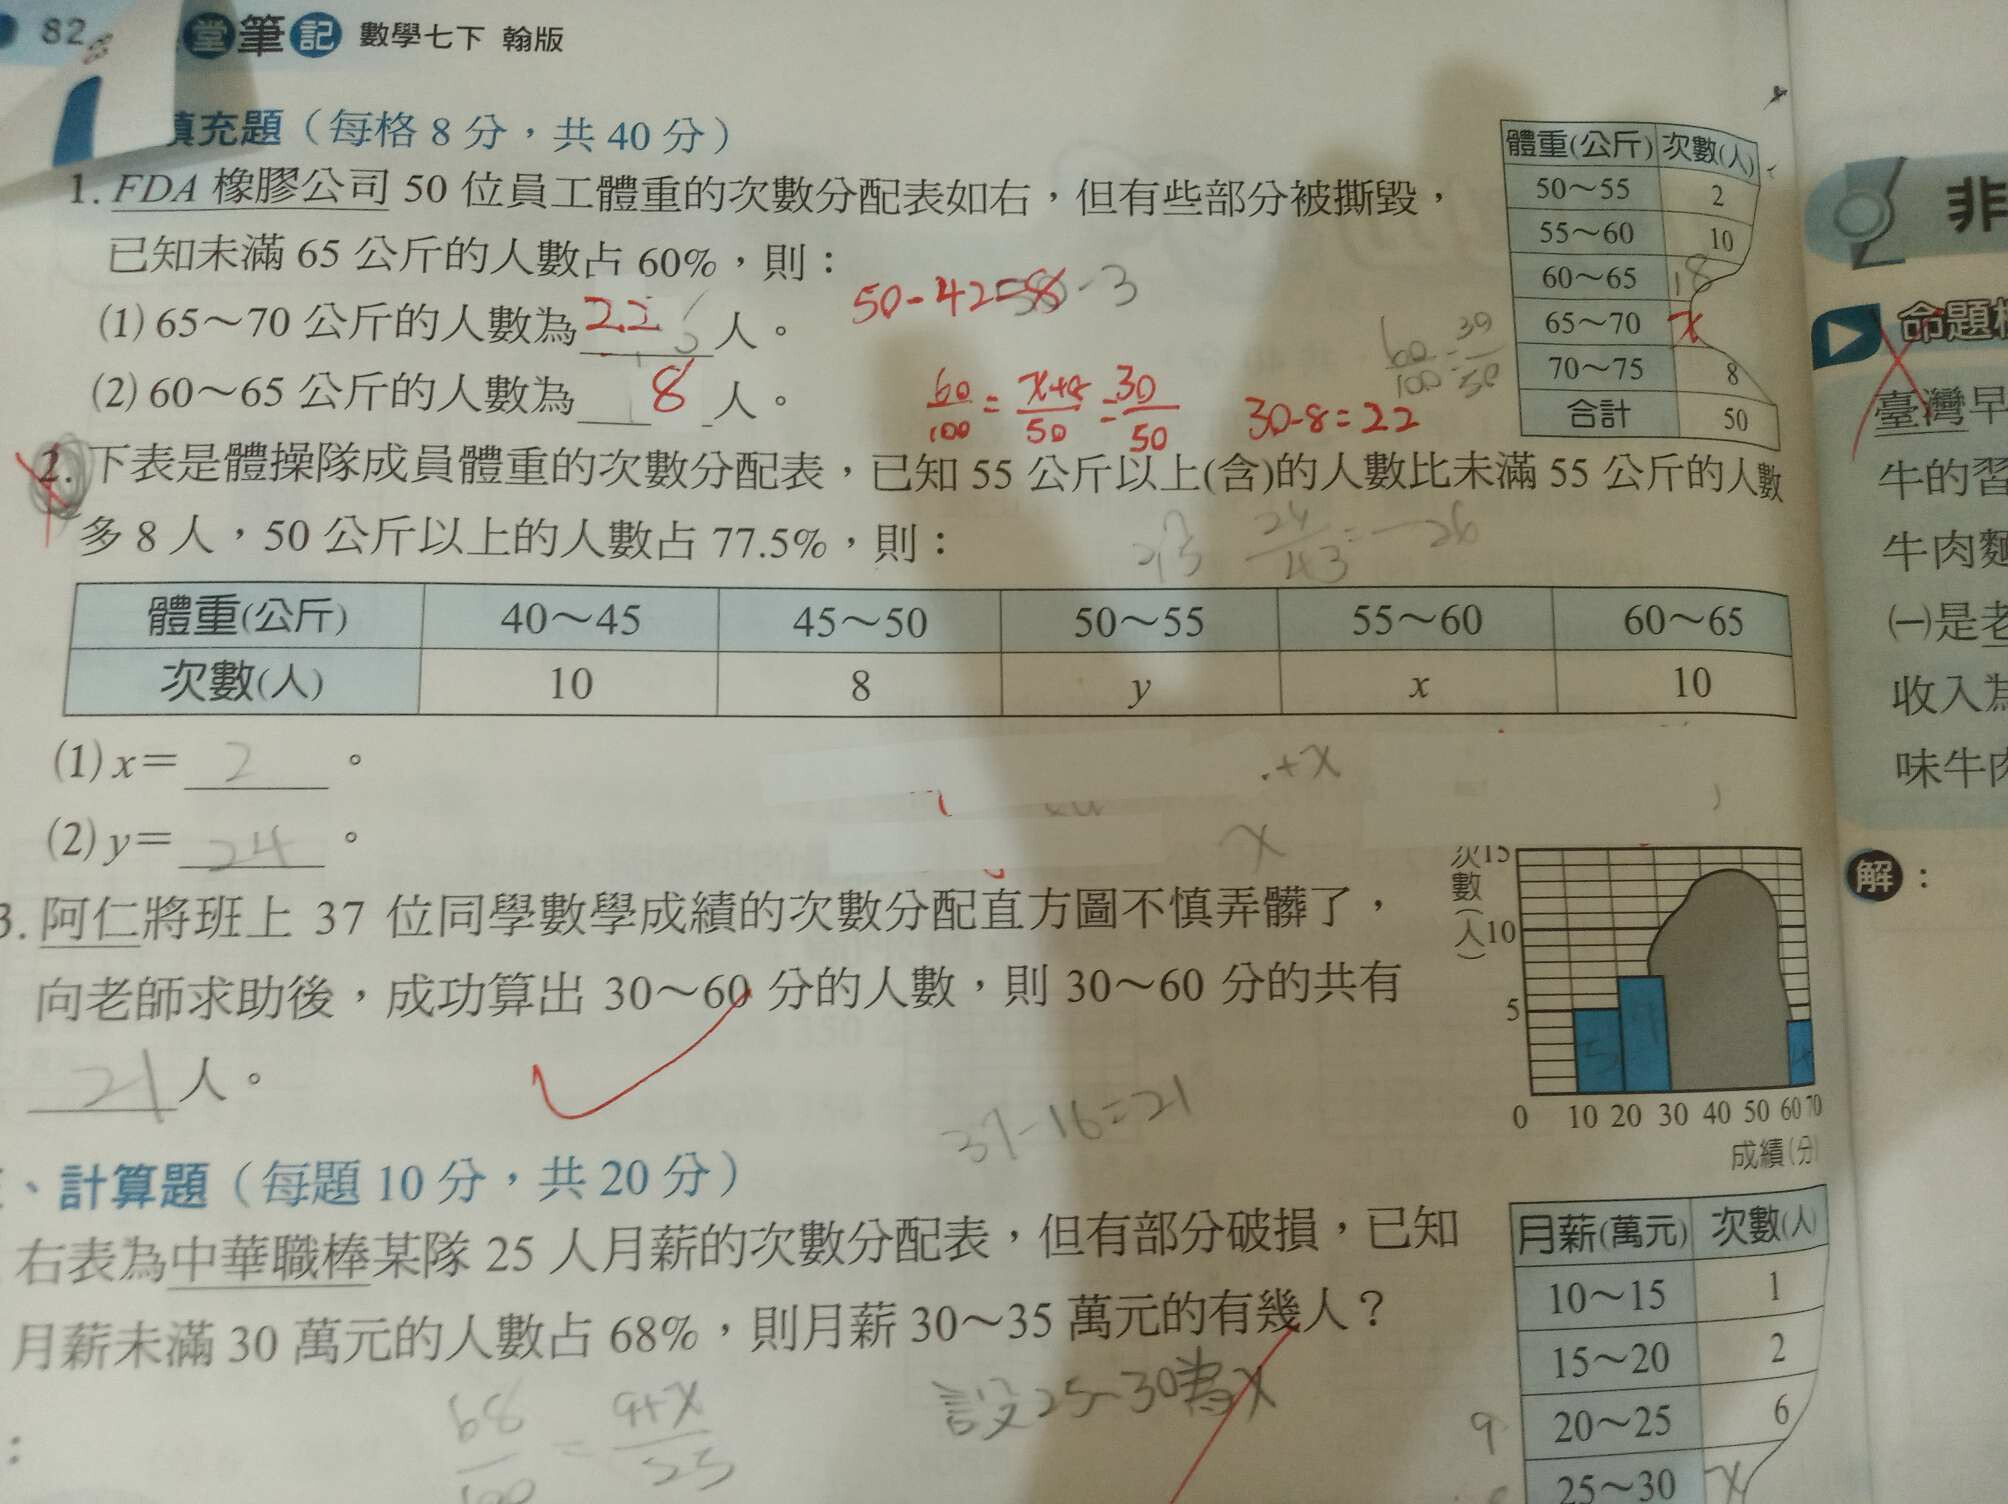 82 堂筆記 數學七下 翰版
填充題（每格8分，共40分）
1. FDA 橡膠公司 50 位員工體重的次數分配表如右，但有些部分被撕毀，
已知未滿 65 公斤的人數占 60%，則：
50-42=8
-3
(1) 65～70 公斤的人數為 22 人。
(2) 60～65 公斤的人數為 8 人。
60/100 = x+8/50 = 30/50
30-8=22
60/100 = 30/50
體重(公斤) 次數(人)
50～55 2
55～60 10
60～65 18
65～70 x
70～75 8
合計 50
2. 下表是體操隊成員體重的次數分配表，已知 55 公斤以上(含)的人數比未滿 55 公斤的人數
多 8 人，50 公斤以上的人數占 77.5%，則：
24/43
體重(公斤) 40～45 45～50 50～55 55～60 60～65
次數(人) 10 8 y x 10
(1) x＝ 2 。
+x
(2) y＝ 24 。
x
3. 阿仁將班上 37 位同學數學成績的次數分配直方圖不慎弄髒了，
向老師求助後，成功算出 30～60 分的人數，則 30～60 分的共有
21 人。
37-16=21
次數(人)
15
10
5
0 10 20 30 40 50 60 70
成績(分)
、計算題（每題10分，共20分）
右表為中華職棒某隊 25 人月薪的次數分配表，但有部分破損，已知
月薪未滿 30 萬元的人數占 68%，則月薪 30～35 萬元的有幾人？
設25-30為x
68/100 = 9+x/25
月薪(萬元) 次數(人)
10～15 1
15～20 2
20～25 6
9
25～30 x
非
命題
臺灣早
牛的習
牛肉麵
㈠是老
收入為
味牛肉
解：